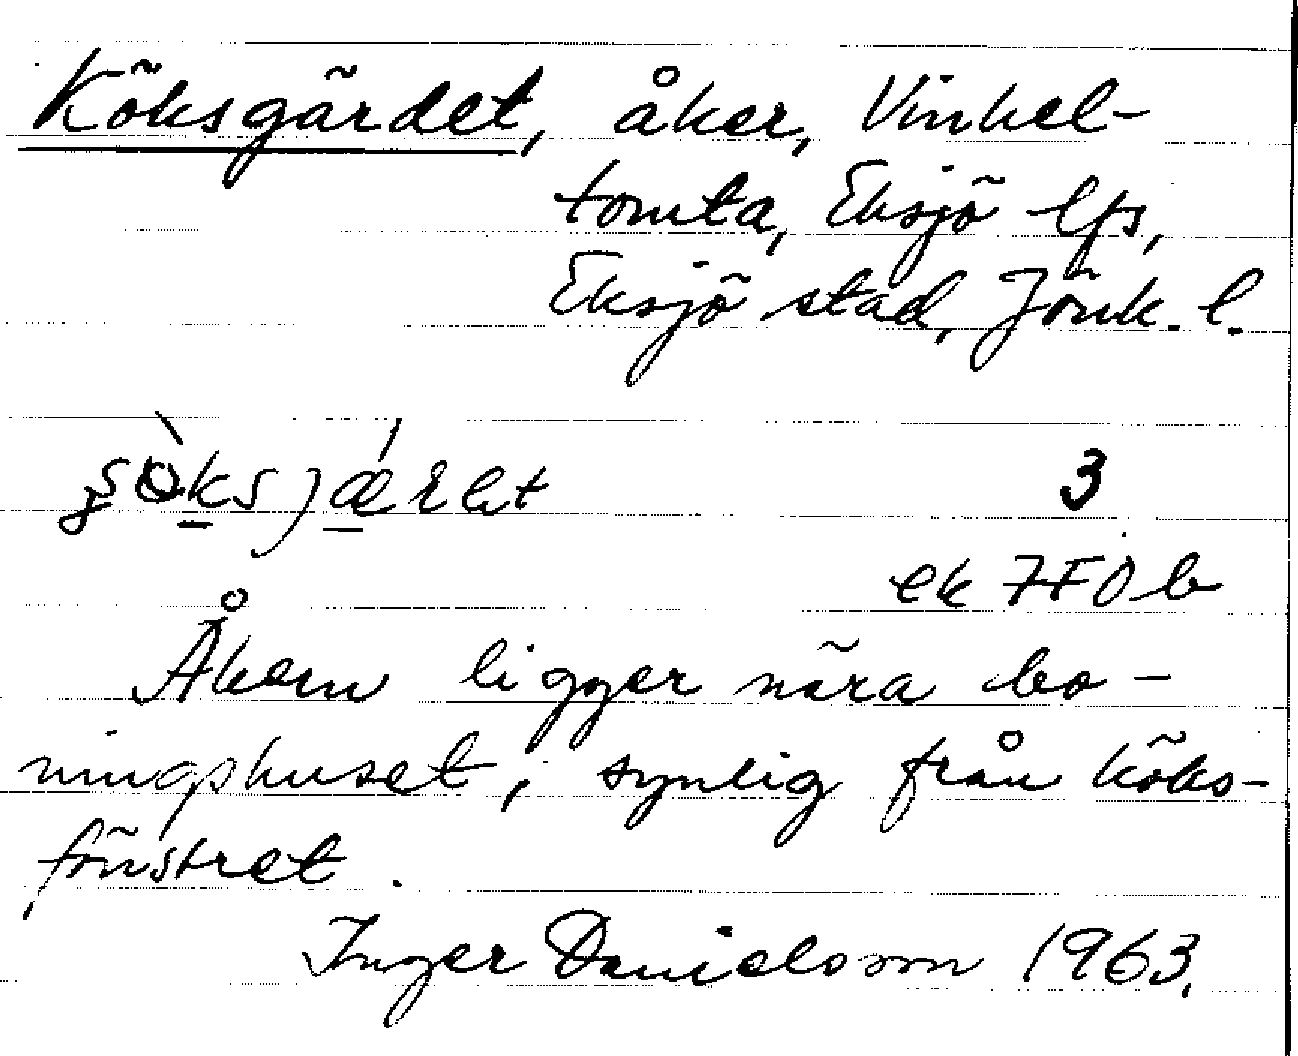 Köksgärdet, åker, Vinkel-
tomta, Eksjö lfs,
Eksjö stad, Jönk. l.
3
ek 7F0b
Åkern ligger nära bo-
ningshuset, synlig från köks-
fönstret.
Inger Danielsson 1963.